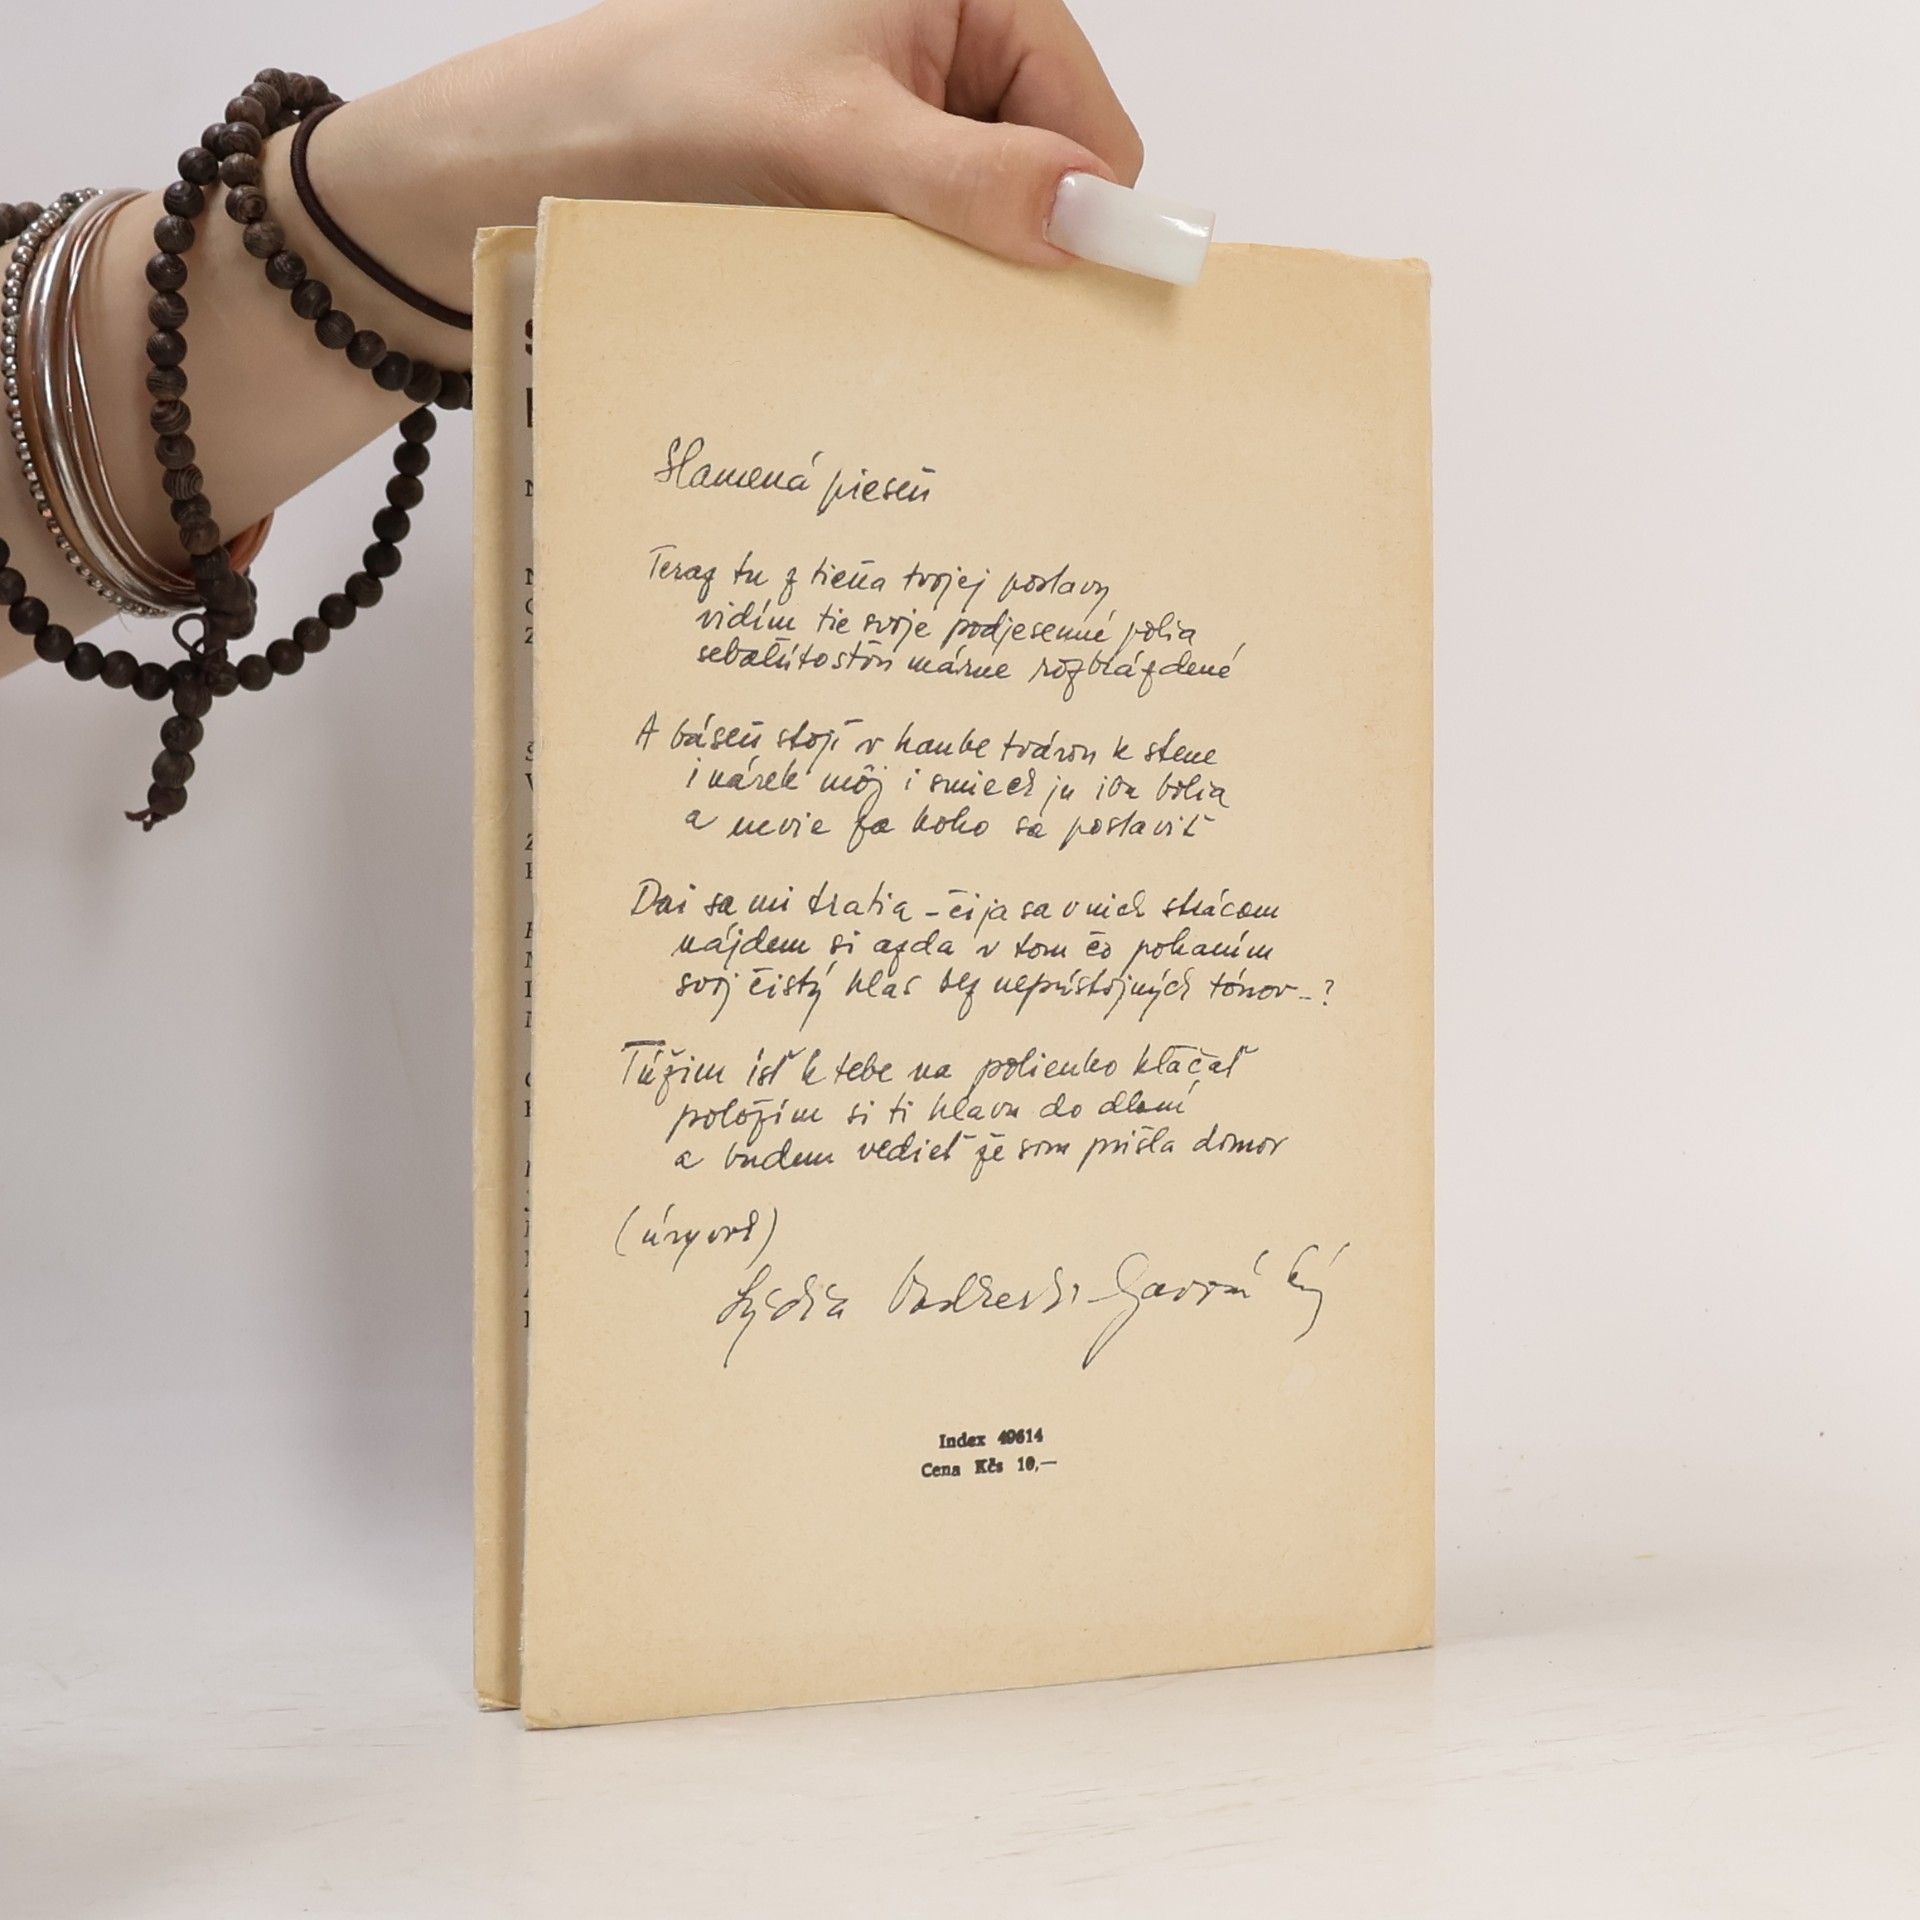 Slamená pieseň
Teraz tu z tieňa tvojej postavy
vidím tie svoje podjesenné polia
sebaľútosťou márne rozbrázdené
A báseň stojí v hanbe tvárou k stene
i nárek môj i smiech ju iba bolia
a nevie za koho sa postaviť
Dni sa mi tratia – či ja sa v nich strácam
nájdem si azda v tom čo pohaním
svoj čistý hlas bez neprístojných tónov –?
Túžim ísť k tebe na polienko kľačať
položím si ti hlavu do dlaní
a budem vedieť že som prišla domov
(úryvok)
Lýdia Vadkerti-Gavorníková
Index 49614
Cena Kčs 10,—